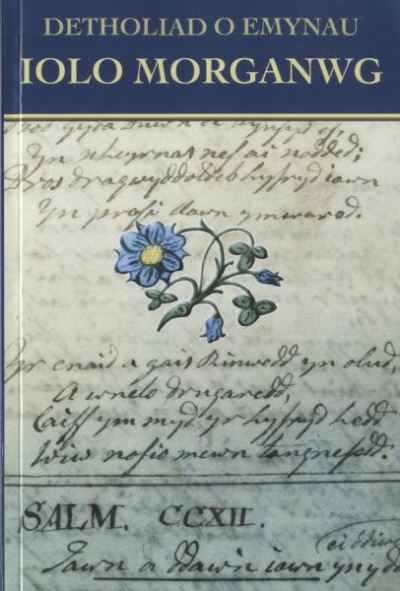 DETHOLIAD O EMYNAU
IOLO MORGANWG
Yn nheyrnas nef ai nodded;
Dros dragwyddoldeb hyfryd iawn
Yn profi llawn ymwared.
Yr enaid a gais Rinwedd yn olud,
A wnelo drugaredd,
Caiff ym myd yr hyfryd hedd
Wiw nofio mewn tangnefedd.
SALM. CCXII.
Iawn a ddawn iawn